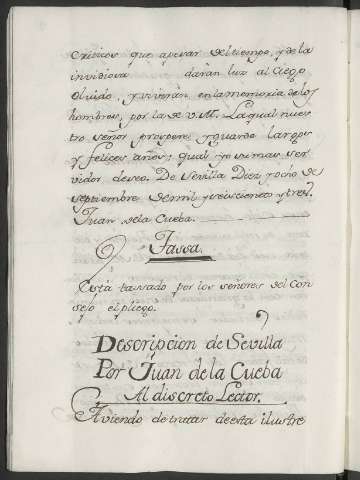 Criticos que apesar del tiempo, y de la
invidiosa daràn luz al Ciego
olvido, y viviràn en la memoria de los
hombres, por la de V.M. La qual nues
tro señor prospere y guarde largos
y felices años, qual yo su mas ser
vidor deseo. De Sevilla Diez y ocho de
septiembre de mil y seiscientos y tres.
Juan dela Cueba.
Tassa.
Està tassado por los señores del Con
sejo el pliego.
Descripcion de Sevilla
Por Juan de la Cueba
Al discreto Lector.
Aviendo de tratar de esta ilustre